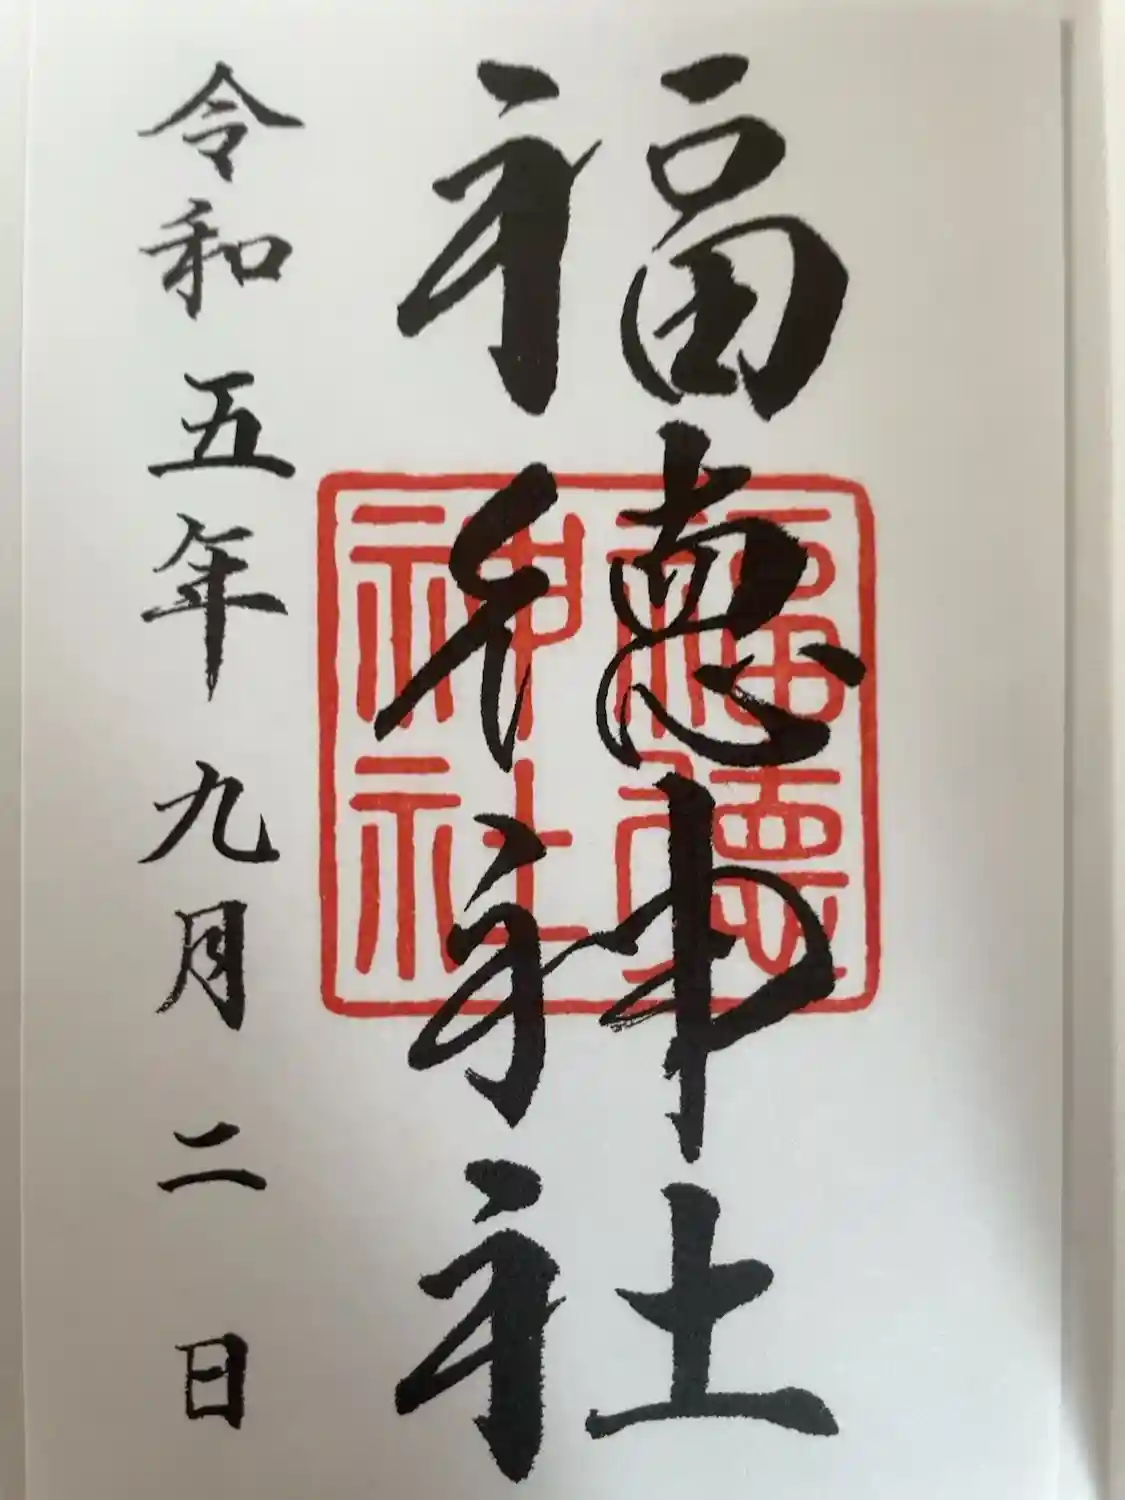 福徳神社
福德神社
令和五年九月二日